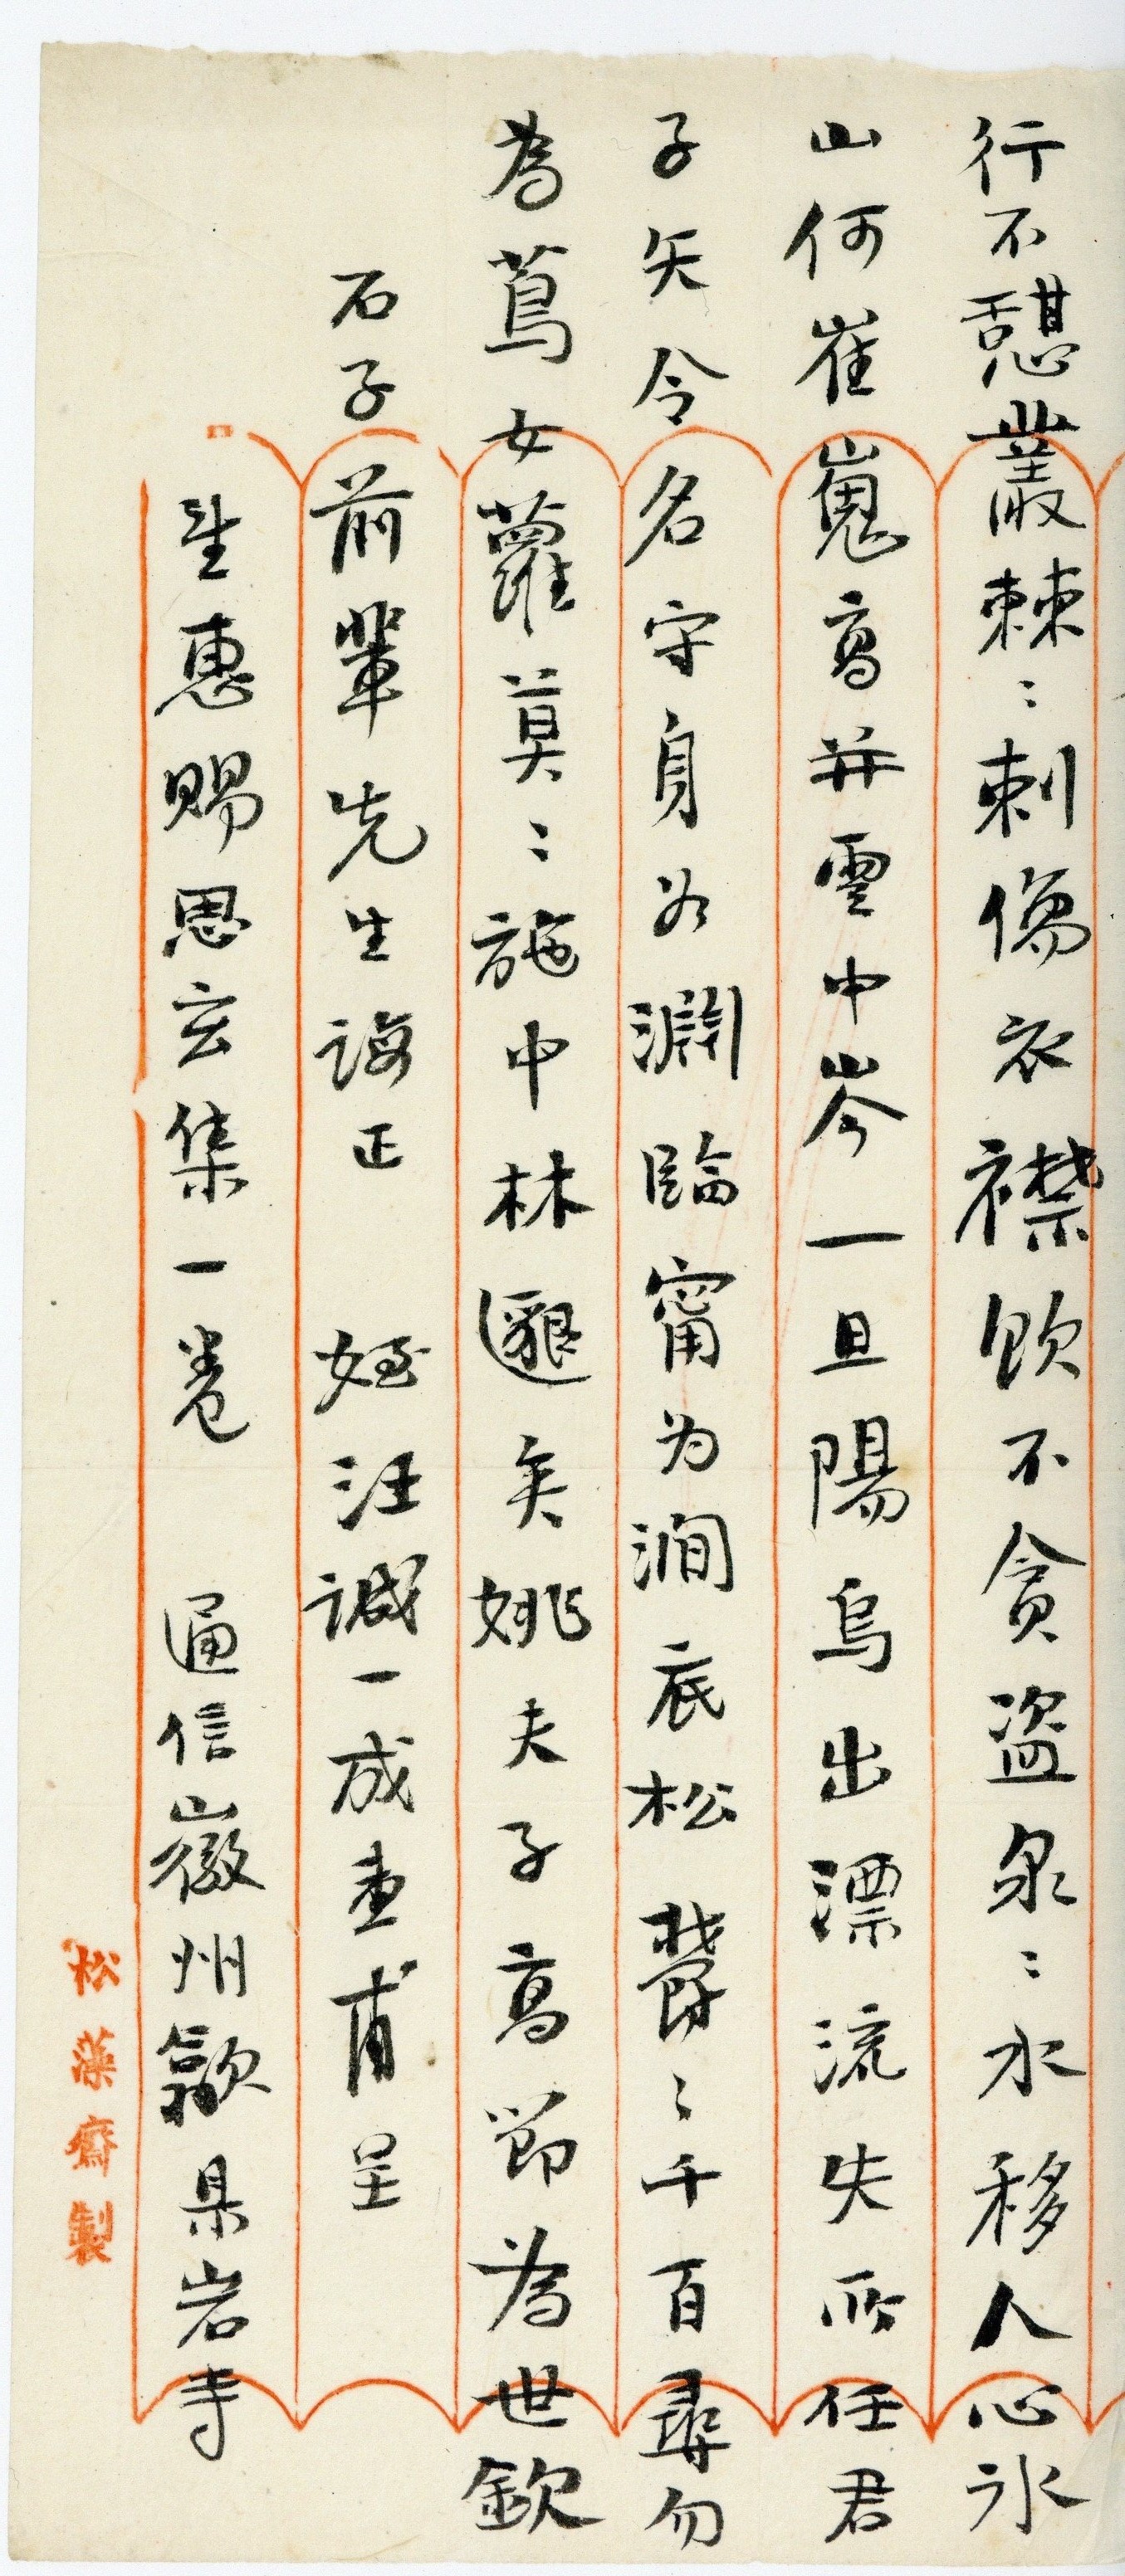 行不憇叢棘〻刺傷衣襟飲不貪盜泉〻水移人心冰
山何崔嵬高並雲中岑一旦陽烏出漂流失所任君
子矢令名守身若淵臨甯为澗底松鬱〻千百尋勿
為蔦女蘿莫〻施中林邈矣姚夫子高節為世欽
石子前輩先生誨正 姪汪誠一成憃甫呈
聖惠賜思玄集一卷 通信徽州歙県岩寺
松藻齋製